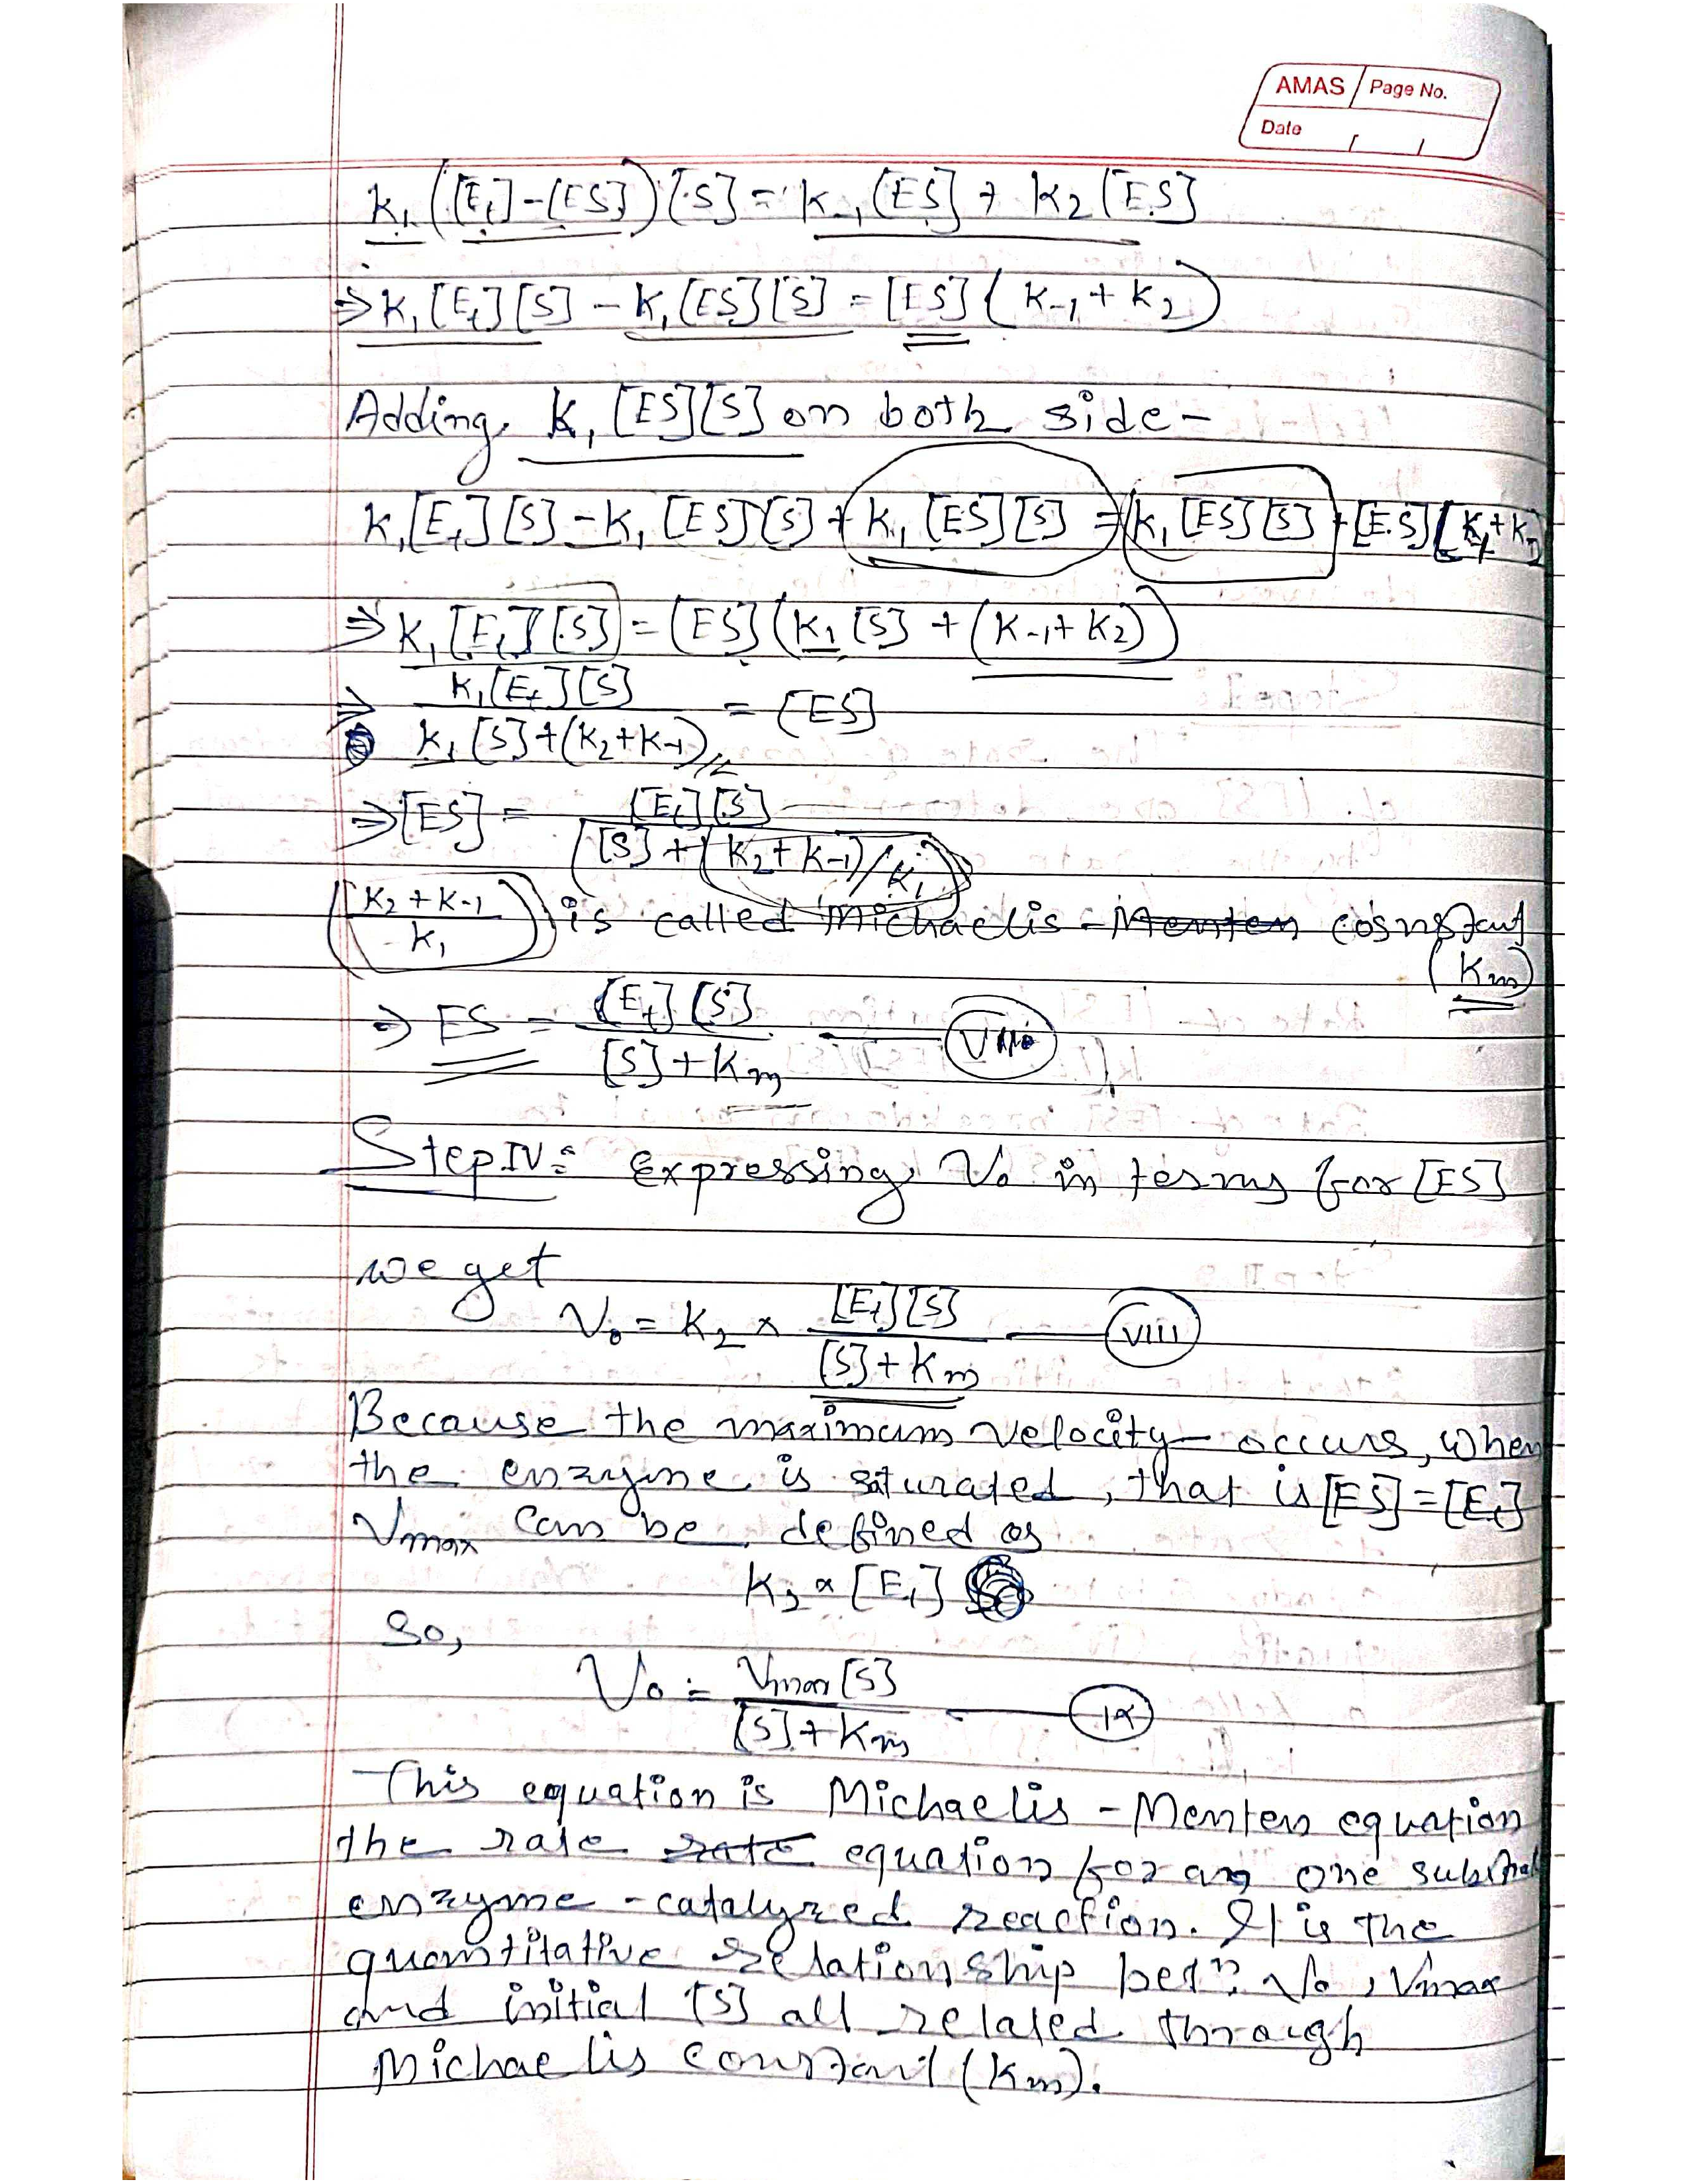 AMAS Page No.
Date / /
k₁([Eₜ]-[ES])[S] = k₋₁[ES] + k₂[ES]
⇒ k₁[Eₜ][S] - k₁[ES][S] = [ES](k₋₁ + k₂)
Adding k₁[ES][S] on both side -
k₁[Eₜ][S] - k₁[ES][S] + k₁[ES][S] = k₁[ES][S] + [ES][k₋₁ + k₂
⇒ k₁[Eₜ][S] = [ES](k₁[S] + (k₋₁ + k₂))
⇒ k₁[Eₜ][S] / k₁[S] + (k₂ + k₋₁) = [ES]
⇒ [ES] = [Eₜ][S] / [S] + (k₂ + k₋₁)/k₁
(k₂ + k₋₁ / k₁) is called Michaelis - Menten cosnstant
(Km)
⇒ ES = [Eₜ][S] / [S] + Km
Step IV: Expressing V₀ in terms for [ES]
we get
V₀ = k₂ × [Eₜ][S] / [S] + Km — VIII
Because the maximum velocity occurs, when
the enzyme is saturated, that is [ES] = [Eₜ]
Vmax can be defined as
k₂ × [Eₜ]
So,
V₀ = Vmax [S] / [S] + Km — IX
This equation is Michaelis - Menten equation
the rate rate equation for an one substrat
enzyme - catalyzed reaction. It is the
quantitative relationship betⁿ V₀, Vmax
and initial [S] all related through
Michaelis constant (Km).